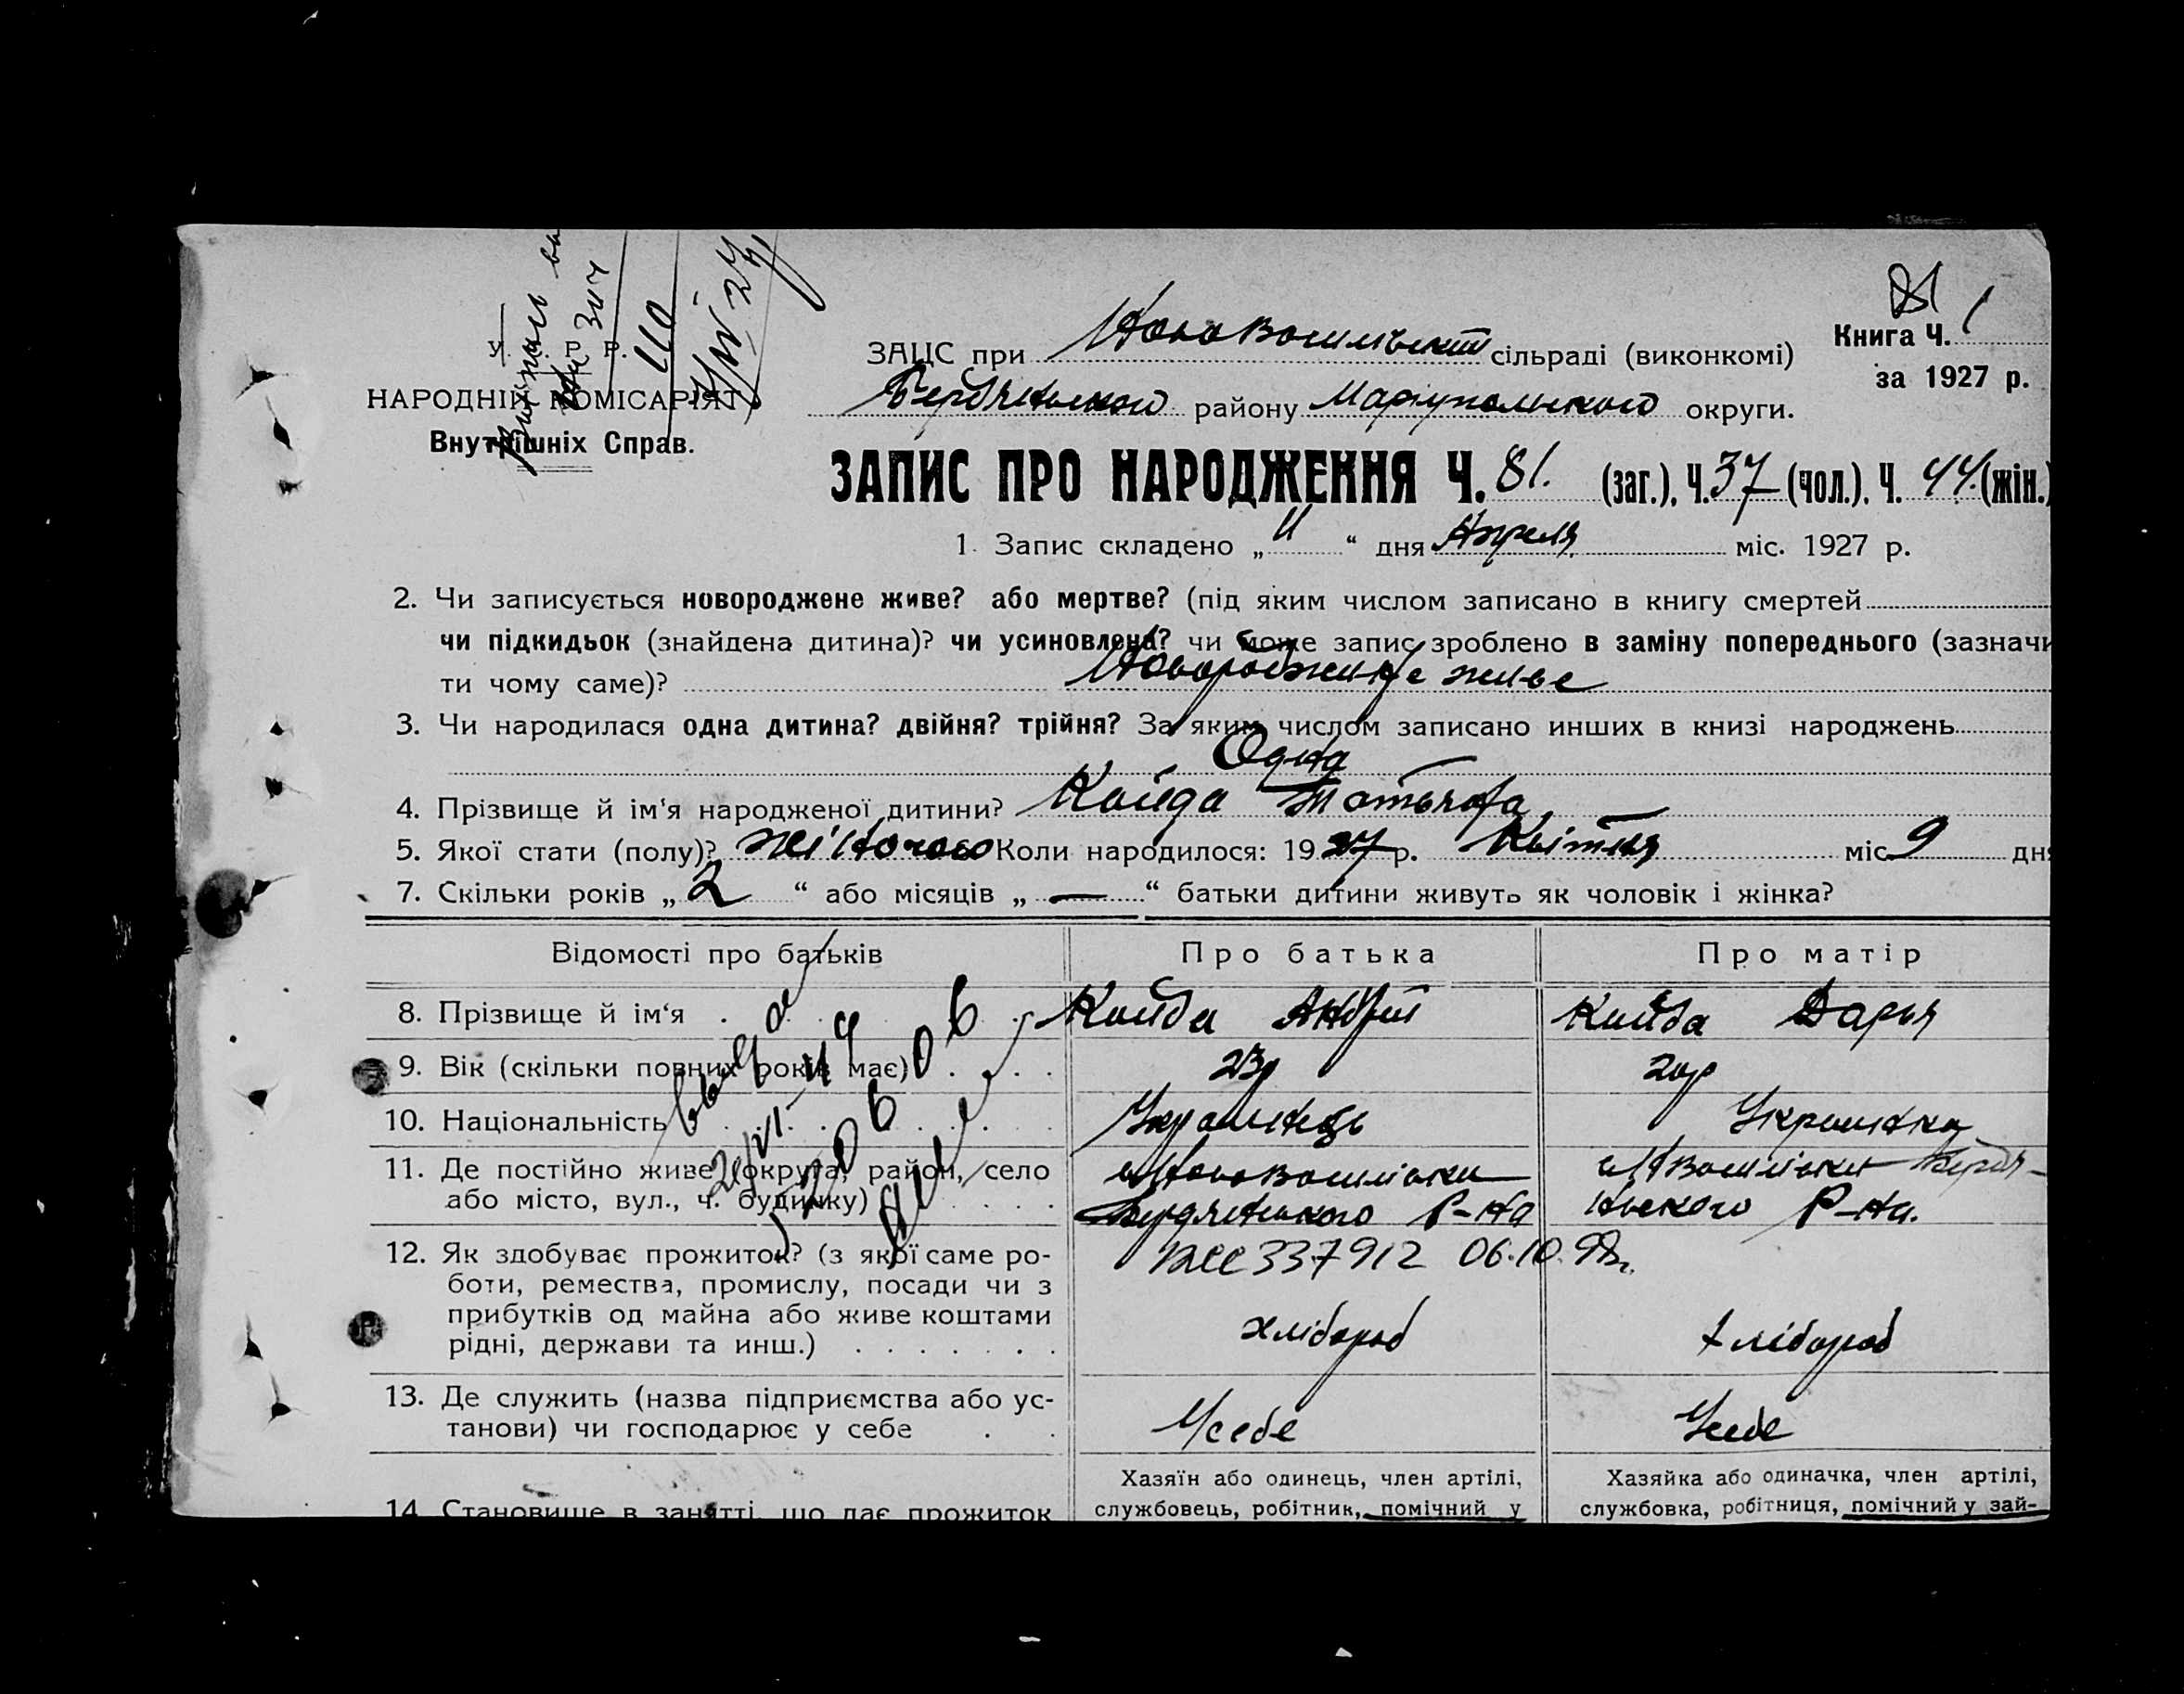 81
Книга Ч. 1
за 1927 р.
У. С. Р. Р.
НАРОДНІЙ КОМІСАРІЯТ
Внутрішніх Справ.
110
ЗАЦС при Нововасильевский сільраді (виконкомі)
Бердянського району Маріупольского округи.
ЗАПИС ПРО НАРОДЖЕННЯ Ч. 81. (заг.), Ч. 37 (чол.), Ч. 44. (жін.)
1. Запис складено „ 11 “ дня Апреля міс. 1927 р.
2. Чи записується новороджене живе? або мертве? (під яким числом записано в книгу смертей
чи підкидьок (знайдена дитина)? чи усиновлена? чи може запис зроблено в заміну попереднього (зазначи
ти чому саме)? Новороджене живе
3. Чи народилася одна дитина? двійня? трійня? За яким числом записано инших в книзі народжень
Одна
4. Прізвище й ім‘я народженої дитини? Койда Татьяна
5. Якої стати (полу)? жіночого Коли народилося: 1927 р. Квітня міс 9 дня
7. Скільки років „ 2 “ або місяців „ — “ батьки дитини живуть як чоловік і жінка?
Відомості про батьків Про батька Про матір
8. Прізвище й ім‘я Койда Андрій Койда Дарья
9. Вік (скільки повних років має) 23р 20р
10. Національність Украинець Украинка
11. Де постійно живе (округа, район, село Нововасилівки Н Василівки Бердя-
або місто, вул., ч. будинку) Бердянського Р-на нського Р-на.
12. Як здобуває прожиток? (з якої саме ро- 337912 06.10.98г.
боти, ремества, промислу, посади чи з
прибутків од майна або живе коштами хлібороб хлібороб
рідні, держави та инш.)
13. Де служить (назва підприємства або ус-
танови) чи господарює у себе Усебе Усебе
Хазяїн або одинець, член артілі, Хазяйка або одиначка, член артілі,
14. Становище в занятті, що дає прожиток службовець, робітник, помічний у службовка, робітниця, помічний у зай-